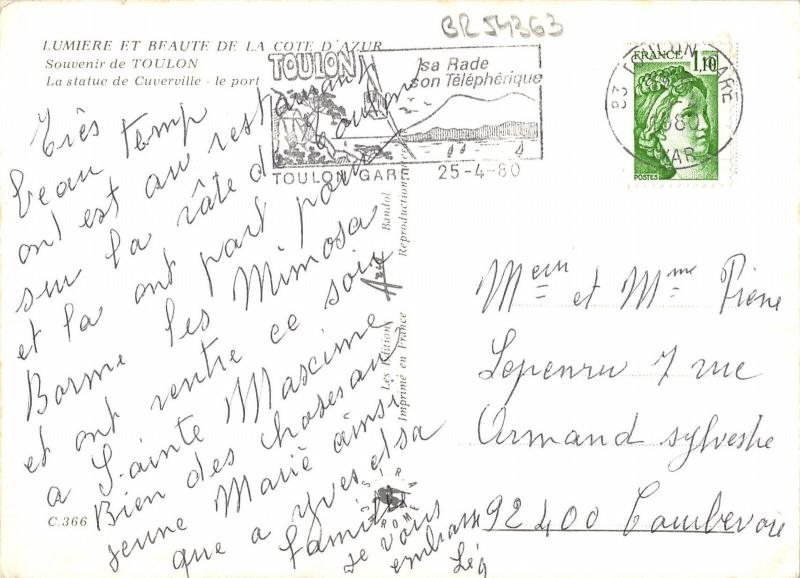 BR 54363
LUMIERE ET BEAUTE DE LA COTE D'AZUR
Souvenir de TOULON
La statue de Cuverville - le port
TOULON
sa Rade
son Téléphérique
TOULON GARE
25-4-80
83 TOULON GARE
VAR
FRANCE
1,10
POSTES
Très
beau temp
ont est au restaurant
sur la râte de Toulon
et la ont part pour
Borme les Mimosa
et ont rentre ce soir
a Sainte Maxime
Bien des choses aux
jeune Marié ainsi
que a yves et sa
famille
je vous
embrasse
Les Editions Azed Bandol
Imprimé en France
Reproduction
C.366
Meur et Mme Pierre
Lepenru 7 rue
Armand sylvestre
92400 Courbevoie